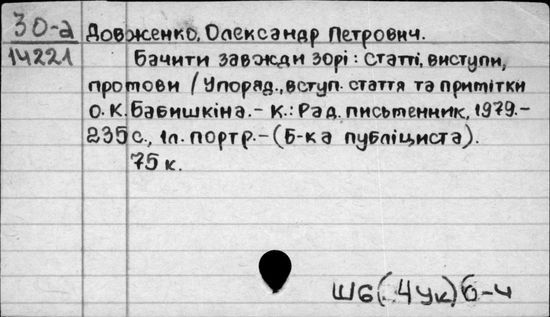 30-а Довженко, Олександр Петрович.
14221 Бачити завжди зорі: Статті, виступи,
промови / Упоряд., вступ. стаття та примітки
О. К. Бабишкіна. - К.: Рад. письменник, 1979. -
235 с., 1л. портр. - (Б-ка публіциста).
75 к.
Ш6(4Ук)6-4